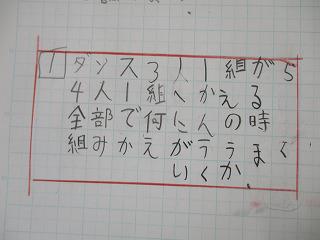 1 ダンス3人1組から
4人1組へかえる
全部で何にんの時
組みかえがうまく
いくか.